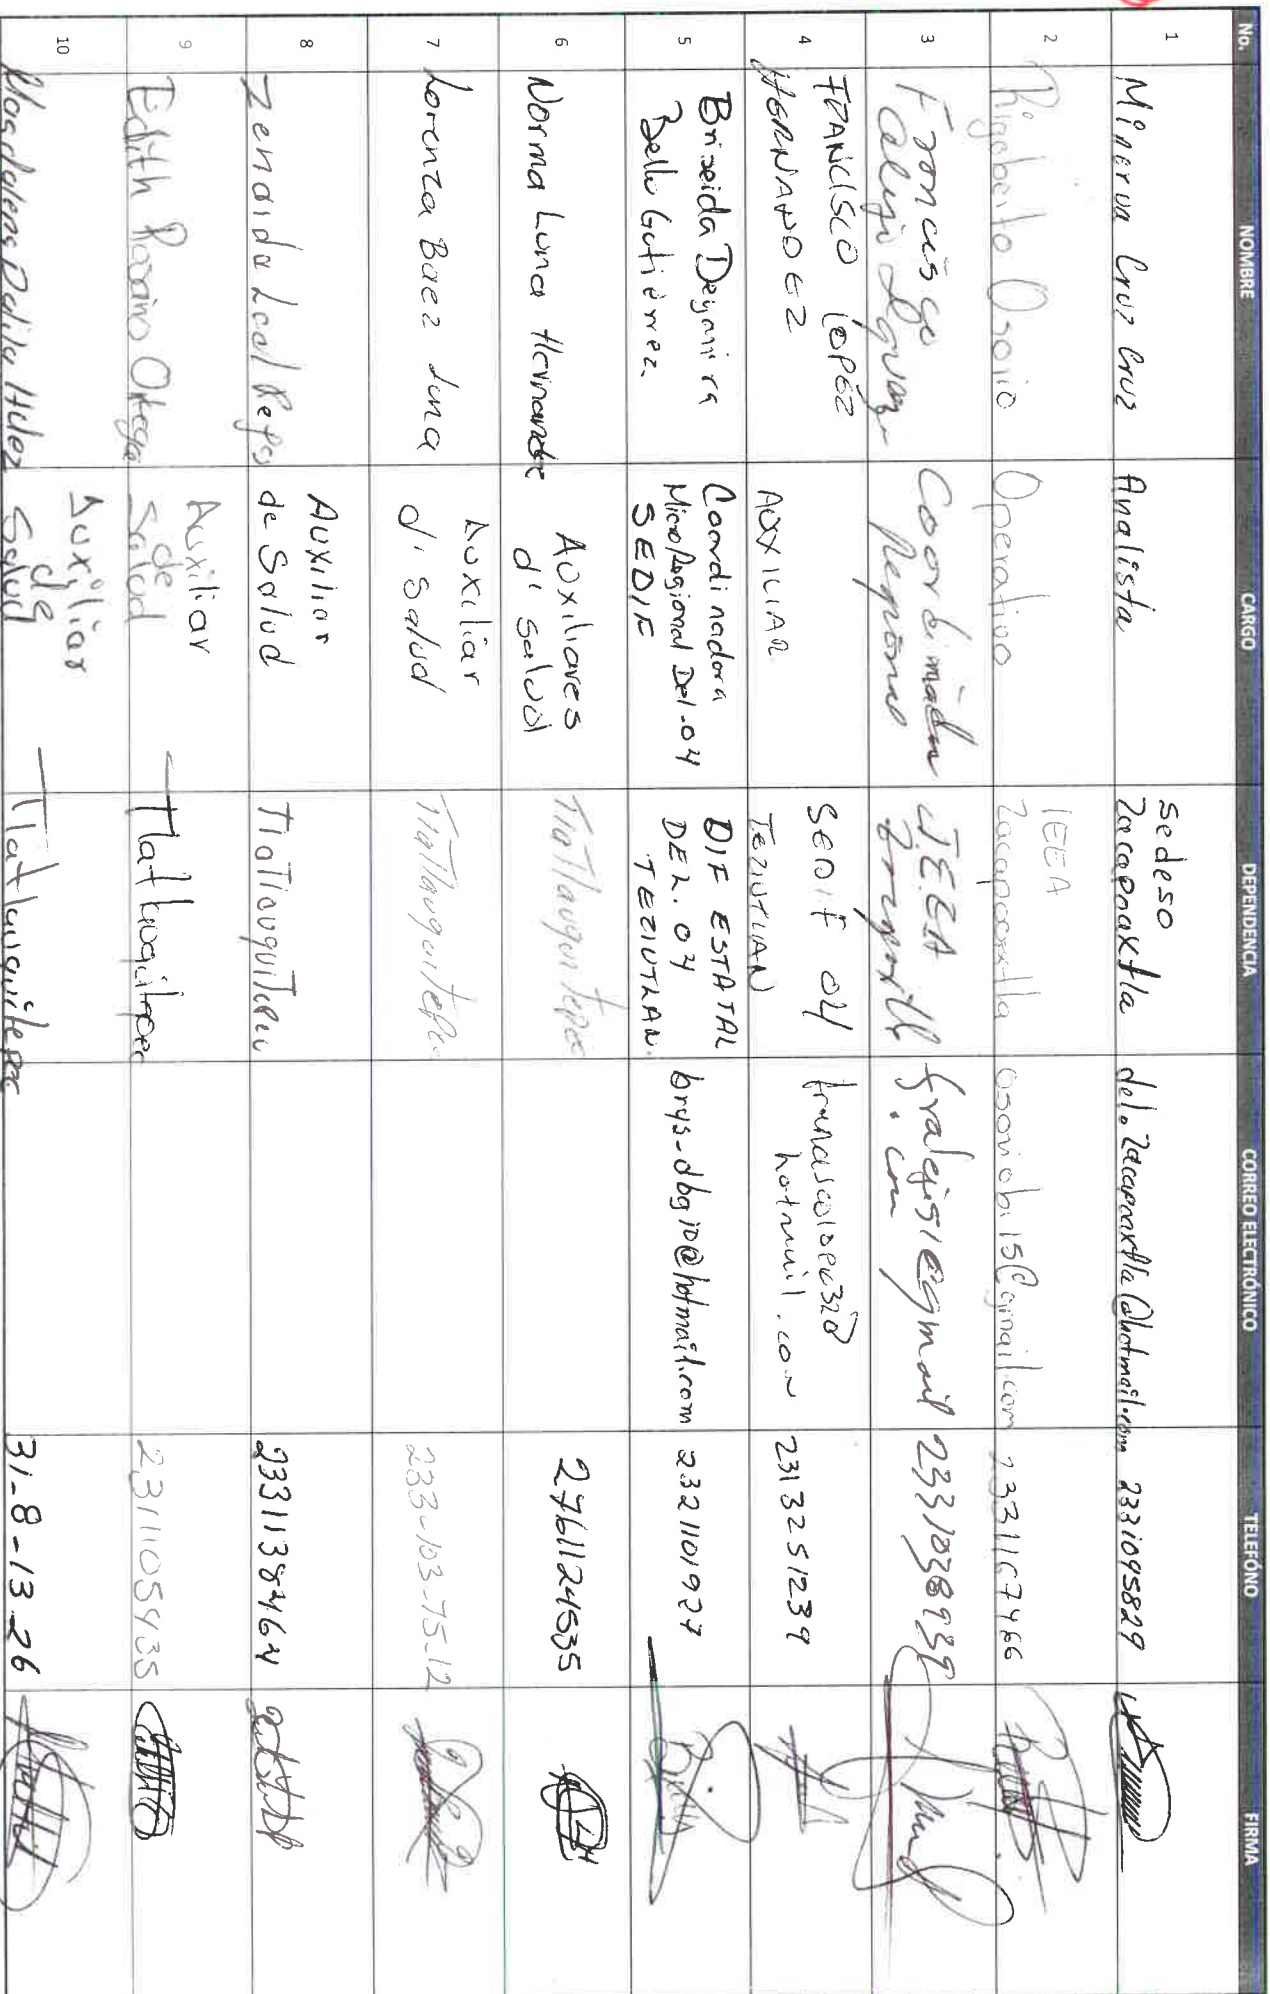 No. NOMBRE CARGO DEPENDENCIA CORREO ELECTRÓNICO TELEFÓNO FIRMA
1 Minerva Cruz Cruz Analista Sedeso Zacapoaxtla del.Zacapoaxtla@hotmail.com 2331095829
2 Rigoberto Osorio Operativo IEEA Zacapoaxtla osoriobi15@gmail.com 2331167466
3 Francisco Coordinador Regional IEEA 2331038939
4 FRANCISCO LOPÉZ HERNANDEZ AUXILIAR SEDIF 04 TEZIUTLAN hotmail.com 2313251239
5 Briseida Deyanira Bello Gutiérrez. Coordinadora MicroRegional Del-04 SEDIF DIF ESTATAL DEL.04 TEZIUTLAN. brys-dbg10@hotmail.com 2321101927
6 Norma Luna Hernandez Auxiliares d' Salud Tlatlauquitepec 2761124535
7 Lorenza Baez Luna Auxiliar d' Salud Tlatlauquitepec 233-103-75-12
8 Zenaida Leal Reyes Auxiliar de Salud Tlatlauquitepec
9 Edith Ortega Auxiliar de Salud Tlatlauquitepec 2311105435
10 Magdalena Dalila Auxiliar de Salud Tlatlauquitepec 31-8-13-26